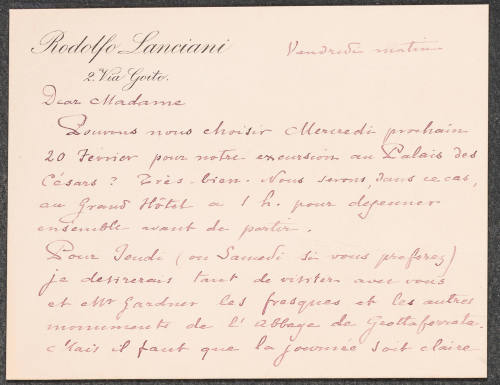 Rodolfo Lanciani
2. Via Goito.
Vendredi matin
Dear Madame
Pouvons nous choisir Mercredi prochain
20 Février pour notre excursion au Palais des
Césars? Très-bien. Nous serons, dans ce cas,
au Grand Hôtel a 1 h. pour dejeuner
ensemble avant de partir.
Pour Jeudi (ou Samedi si vous preferez)
je desirerais tant de visiter avec vous
et Mr Gardner les fresques et les autres
monuments de l'Abbaye de Grottaferrata.
Mais il faut que la journée soit claire